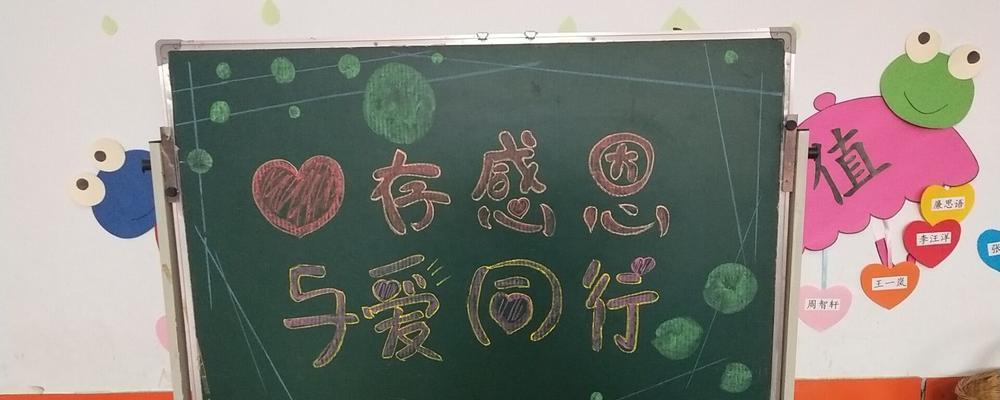 ❤存感恩
与爱同行
值
廉思语
李汪洋
王一岚
周智轩
张